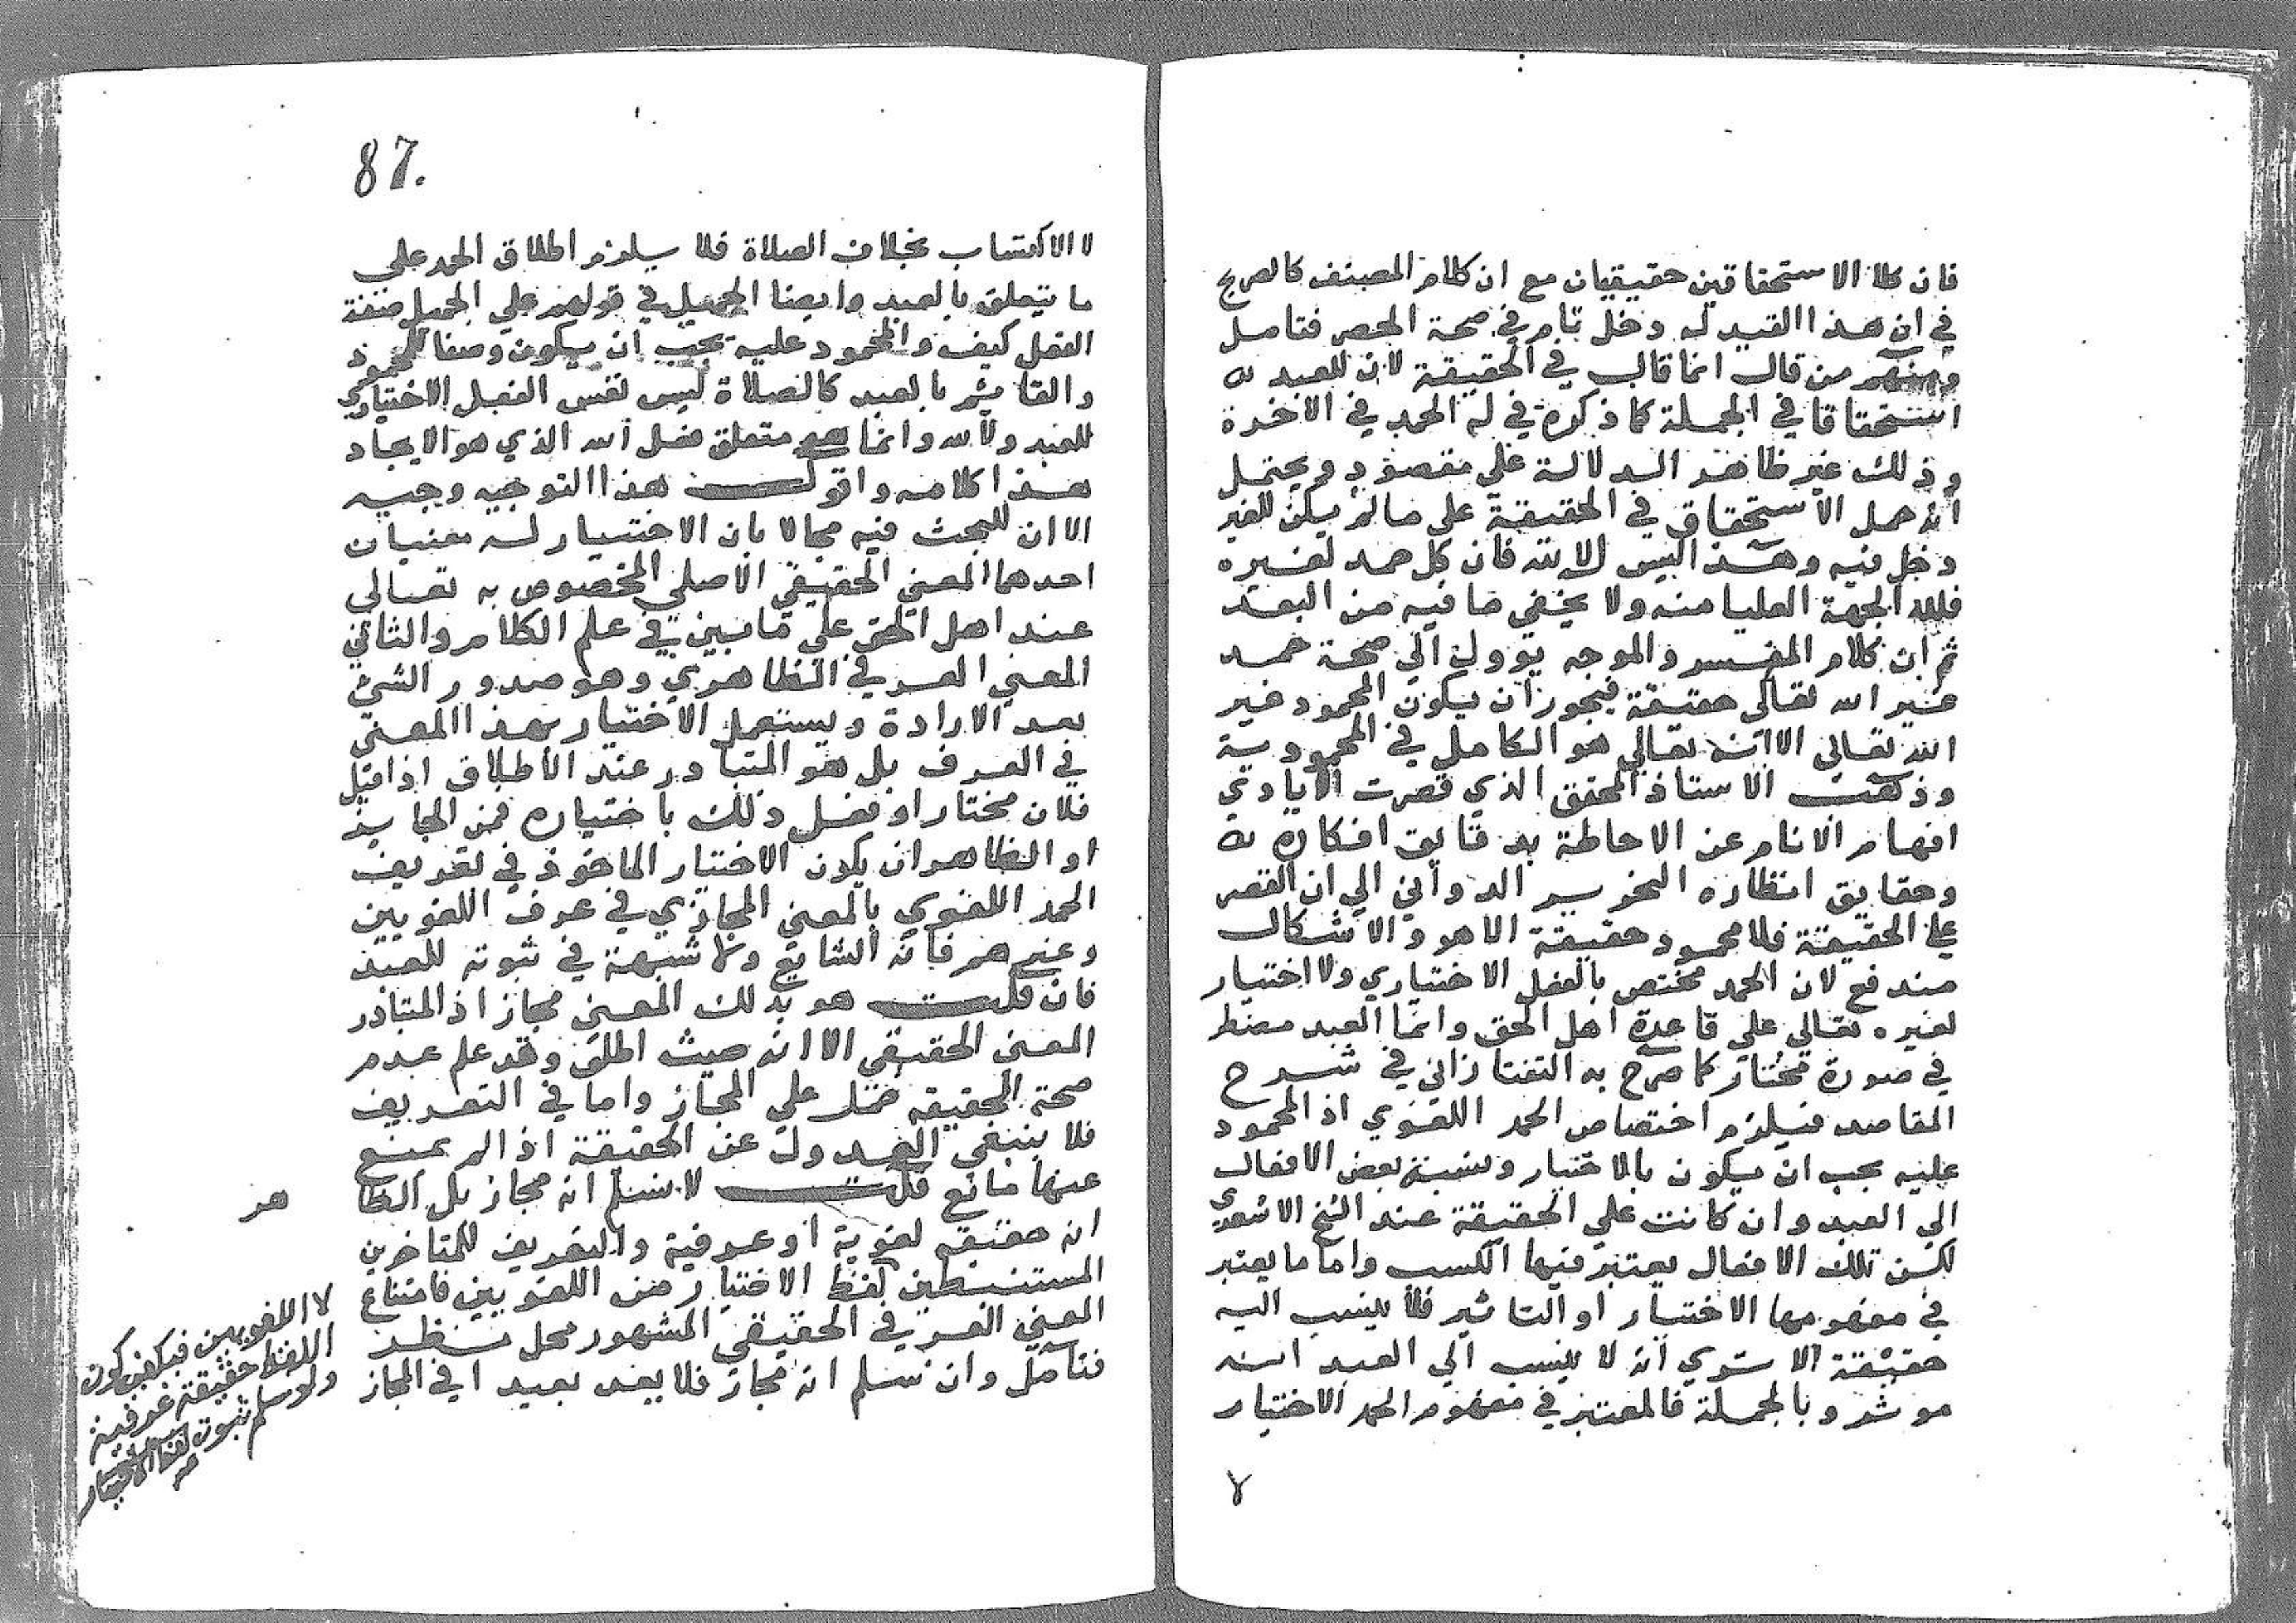 فان كلا الاستحقاقين حقيقيان مع ان كلام المصنف كالصريح
في ان هذا القيد له دخل تام في صحة الحصر فتامل
ومنهم من قال انما قال في الحقيقة لان للعبد له
استحقاقا في الجملة كما ذكره في له الحمد في الاخرة
وذلك غير ظاهر الدلالة على مقصود ويحتمل
انه حمل الاستحقاق في الحقيقة على ما لم يكن للغير
دخل فيه وهذا ليس الا لله فان كل حمد لغيره
فلله الجهة العليا منه ولا يخفى ما فيه من البعد
ثم ان كلام المفسر والموجه يؤول الي صحة حمد
غير الله تعالى حقيقة فيجوز ان يكون المحمود غير
الله تعالى الا انه تعالي هو الكامل في المحمودية
وذهب الاستاذ المحقق الذي قصرت الايادي
افهام الانام عن الاحاطة بدقايق افكاره له
وحقايق انظاره النحرير الدواني الي ان القصر
على الحقيقة فلا محمود حقيقة الا هو والاشكال
مندفع لان الحمد مختص بالفعل الاختياري ولا اختيار
لغيره تعالى على قاعدة اهل الحق وانما العبد مضطر
في صورة مختار كما صرح به التفتازاني في شرح
المقاصد فيلزم اختصاص الحمد اللغوي اذ المحمود
عليه يجب ان يكون بالاختيار ونسبة بعض الافعال
الي العبد وان كانت علي الحقيقة عند الشيخ الاشعري
لكن تلك الافعال يعتبر فيها الكسب واما ما يعتبر
في مفهومها الاختيار او التاثير فلا ينسب اليه
حقيقة الا سترى انه لا ينسب الي العبد انه
موثر وبالجملة فالمعتبر في مفهوم الحمد الاختيار
87.
لا الاكتساب بخلاف الصلاة فلا يلزم اطلاق الحمد علي
ما يتعلق بالعبد وايضا الجميل في قولهم علي الجميل صفة
الفعل كيف والمحمود عليه يجب ان يكون وصفا للمحمود
والقائم بالعبد كالصلاة ليس نفس الفعل الاختياري
للعبد ولا لله وانما هو متعلق فعل الله الذي هو الايجاد
هذا كلامه واقول هذا التوجيه وجيه
الا ان للبحث فيه مجالا بان الاختيار له معنيان
احدهما المعني الحقيقي الاصلي المخصوص به تعالى
عند اهل الحق علي ما بين في علم الكلام والثاني
المعني العرفي الظاهري وهو صدور الشئ
بعد الارادة ويستعمل الاختيار بهذا المعنى
في العرف بل هو المتبادر عند الاطلاق اذا قيل
فلان مختار او فعل ذلك باختياره فمن الجايز
او الظاهر ان يكون الاختيار الماخوذ في تعريف
الحمد اللغوي بالمعني المجازي في عرف اللغويين
وغيرهم فانه الشايع ولا شبهة في ثبوته للعبد
فان قلت هو بذلك المعنى مجاز اذ المتبادر
المعنى الحقيقي الا انه حيث اطلق وقد علم عدم
صحة الحقيقة حمل علي المجاز واما في التعريف
فلا ينبغي العدول عن الحقيقة اذا لم يمنع
عنها مانع قلت لا نسلم انه مجاز بل الظا
هر
انه حقيقة لغوية او عرفية والتعريف للمتاخرين
المستنبطين لفظ الاختيار من اللغويين فامتناع
المعني العرفي الحقيقي المشهور محل نظر
فتامل وان نسلم انه مجاز فلا يعد بعيدا في المجاز
لا اللغويين فيكفي كون
اللفظ حقيقة عرفية
ولو سلم ثبوت لفظ الاختيار